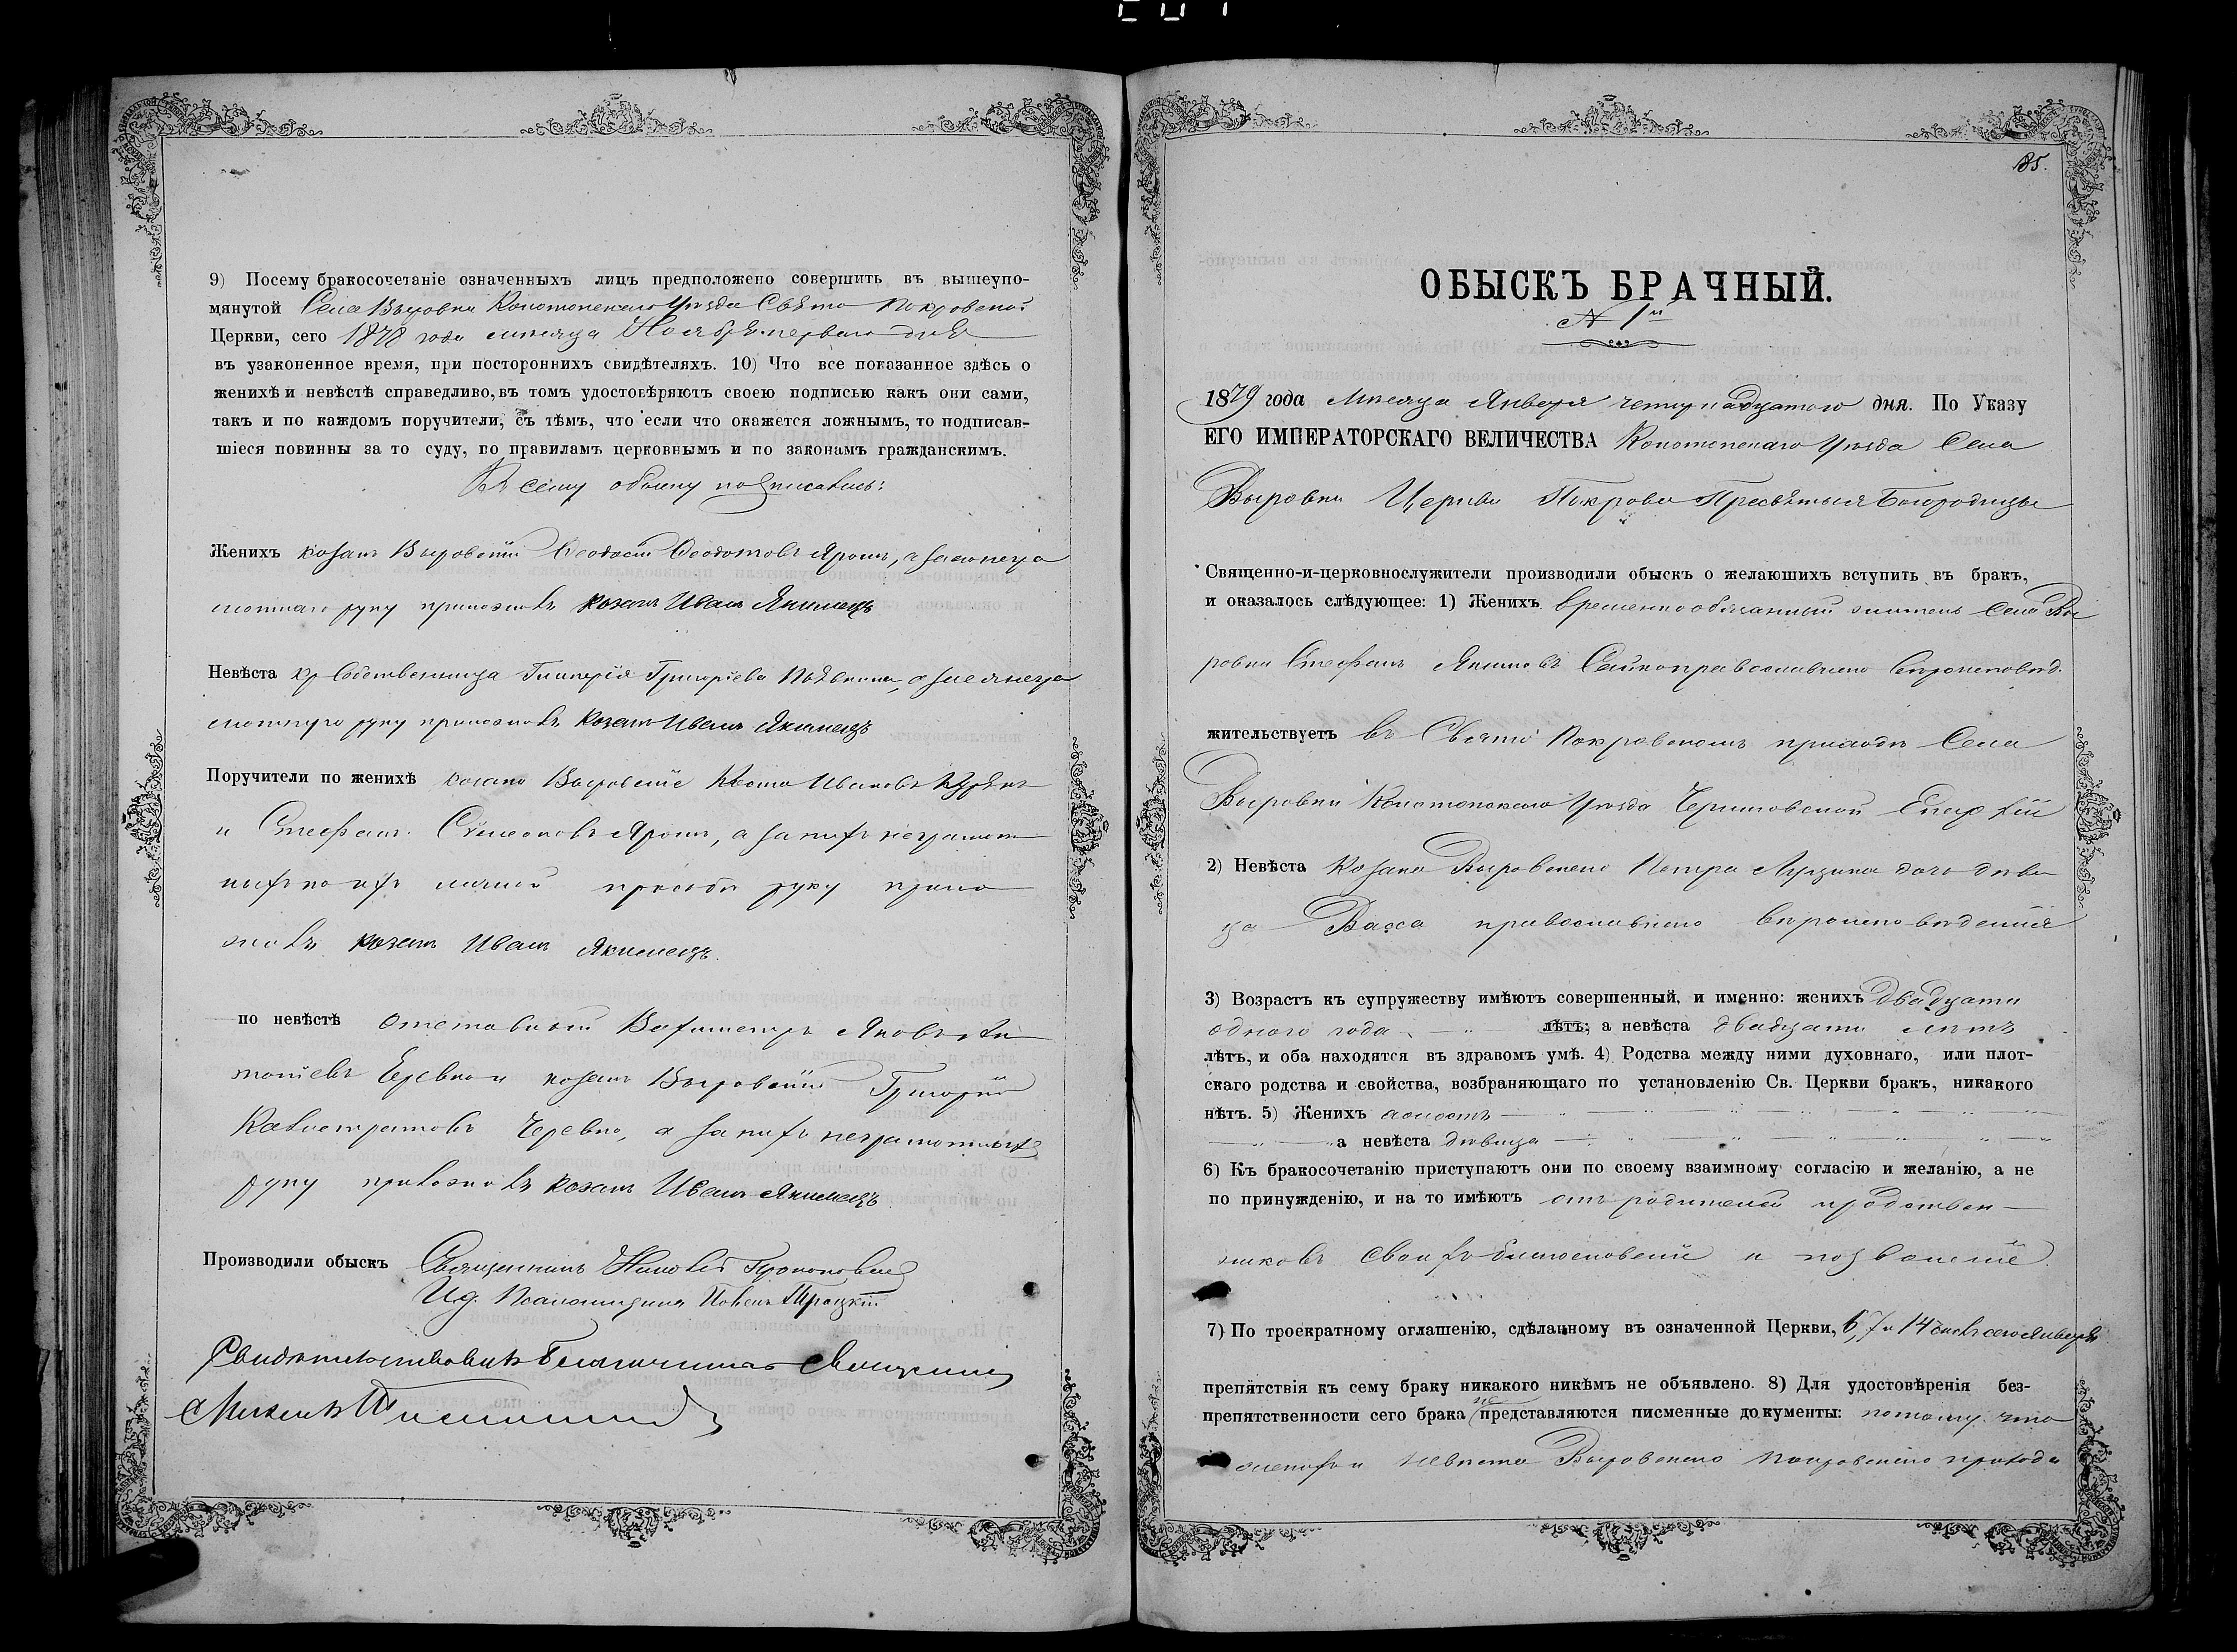 9) Посему бракосочетаніе означенныхъ лицъ предположено совершить въ вышеупо-
мянутой Села Выровки Конотопскаго Уѣзда Свято Покровской
Церкви, сего 1878 года мѣсяца Ноября первого дня
въ узаконенное время, при постороннихъ свидѣтеляхъ. 10) Что все показанное здѣсь о
женихѣ и невѣстѣ справедливо, въ томъ удостовѣряютъ своею подписью какъ они сами,
такъ и по каждомъ поручители, съ тѣмъ, что если что окажется ложнымъ, то подписав-
шіеся повинны за то суду, по правиламъ церковнымъ и по законамъ гражданскимъ.
Къ сему обыску подписались:
Женихъ козакъ Выровскій Ѳеодосій Ѳеодотовъ Ярошъ, а за него негра
мотнаго руку приложилъ козакъ Иванъ Якимецъ
Невѣста кр Собственница Гликерія Григоріева а за нея негра
мотную руку приложилъ козакъ Иванъ Якимецъ
Поручители по женихѣ козаки Выровскіе Ивановъ
и Стефанъ Симеоновъ Ярошъ, а за нихъ неграмот
ныхъ по ихъ личной просьбѣ руку прило
жилъ козакъ Иванъ Якимецъ.
по невѣстѣ отставной Вахмистръ Яковъ Ан
тоніевъ Черевко и козакъ Выровскій Григорій
Калистратовъ Черевко, а за нихъ неграмотныхъ
руку приложилъ козакъ Иванъ Якимецъ
Производили обыскъ Священникъ
И. д. Псаломщика Павелъ Троцкій
Свидѣтельствовалъ Благочинный Священникъ
85.
ОБЫСКЪ БРАЧНЫЙ.
№ 1й
1879 года мѣсяца Января четырнадцатого дня. По Указу
ЕГО ИМПЕРАТОРСКАГО ВЕЛИЧЕСТВА Конотопскаго Уѣзда Села
Выровки Церкви Покрова Пресвятыя Богородицы
Священно-и-церковнослужители производили обыскъ о желающихъ вступить въ бракъ,
и оказалось слѣдующее: 1) Женихъ временнообязанный житель Села Вы
ровки Стефанъ Якимовъ Сайко православнаго вѣроисповѣд.
жительствуетъ въ Свято Покровскомъ приходѣ Села
Выровки Конотопскаго Уѣзда Черниговской Епархіи
2) Невѣста Козака Выровского Петра дочь дѣви
ца Васса православного вѣроисповѣданія
3) Возрастъ къ супружеству имѣютъ совершенный, и именно: женихъ двадцати
одного года лѣтъ; а невѣста двадцати лѣтъ
лѣтъ, и оба находятся въ здравомъ умѣ. 4) Родства между ними духовнаго, или плот-
скаго родства и свойства, возбраняющаго по установленію Св. Церкви бракъ, никакого
нѣтъ. 5) Женихъ холостъ
а невѣста дѣвица
6) Къ бракосочетанію приступаютъ они по своему взаимному согласію и желанію, а не
по принужденію, и на то имѣютъ отъ родителей и родствен
никовъ своихъ благословеніе и позволеніе.
7) По троекратному оглашенію, сдѣланному въ означенной Церкви, 6, 7 и 14 числъ сего Января
препятствія къ сему браку никакого никѣмъ не объявлено. 8) Для удостовѣренія без-
препятственности сего брака не представляются писменные документы: потому что
женихъ и невѣста Выровского Покровского прихода